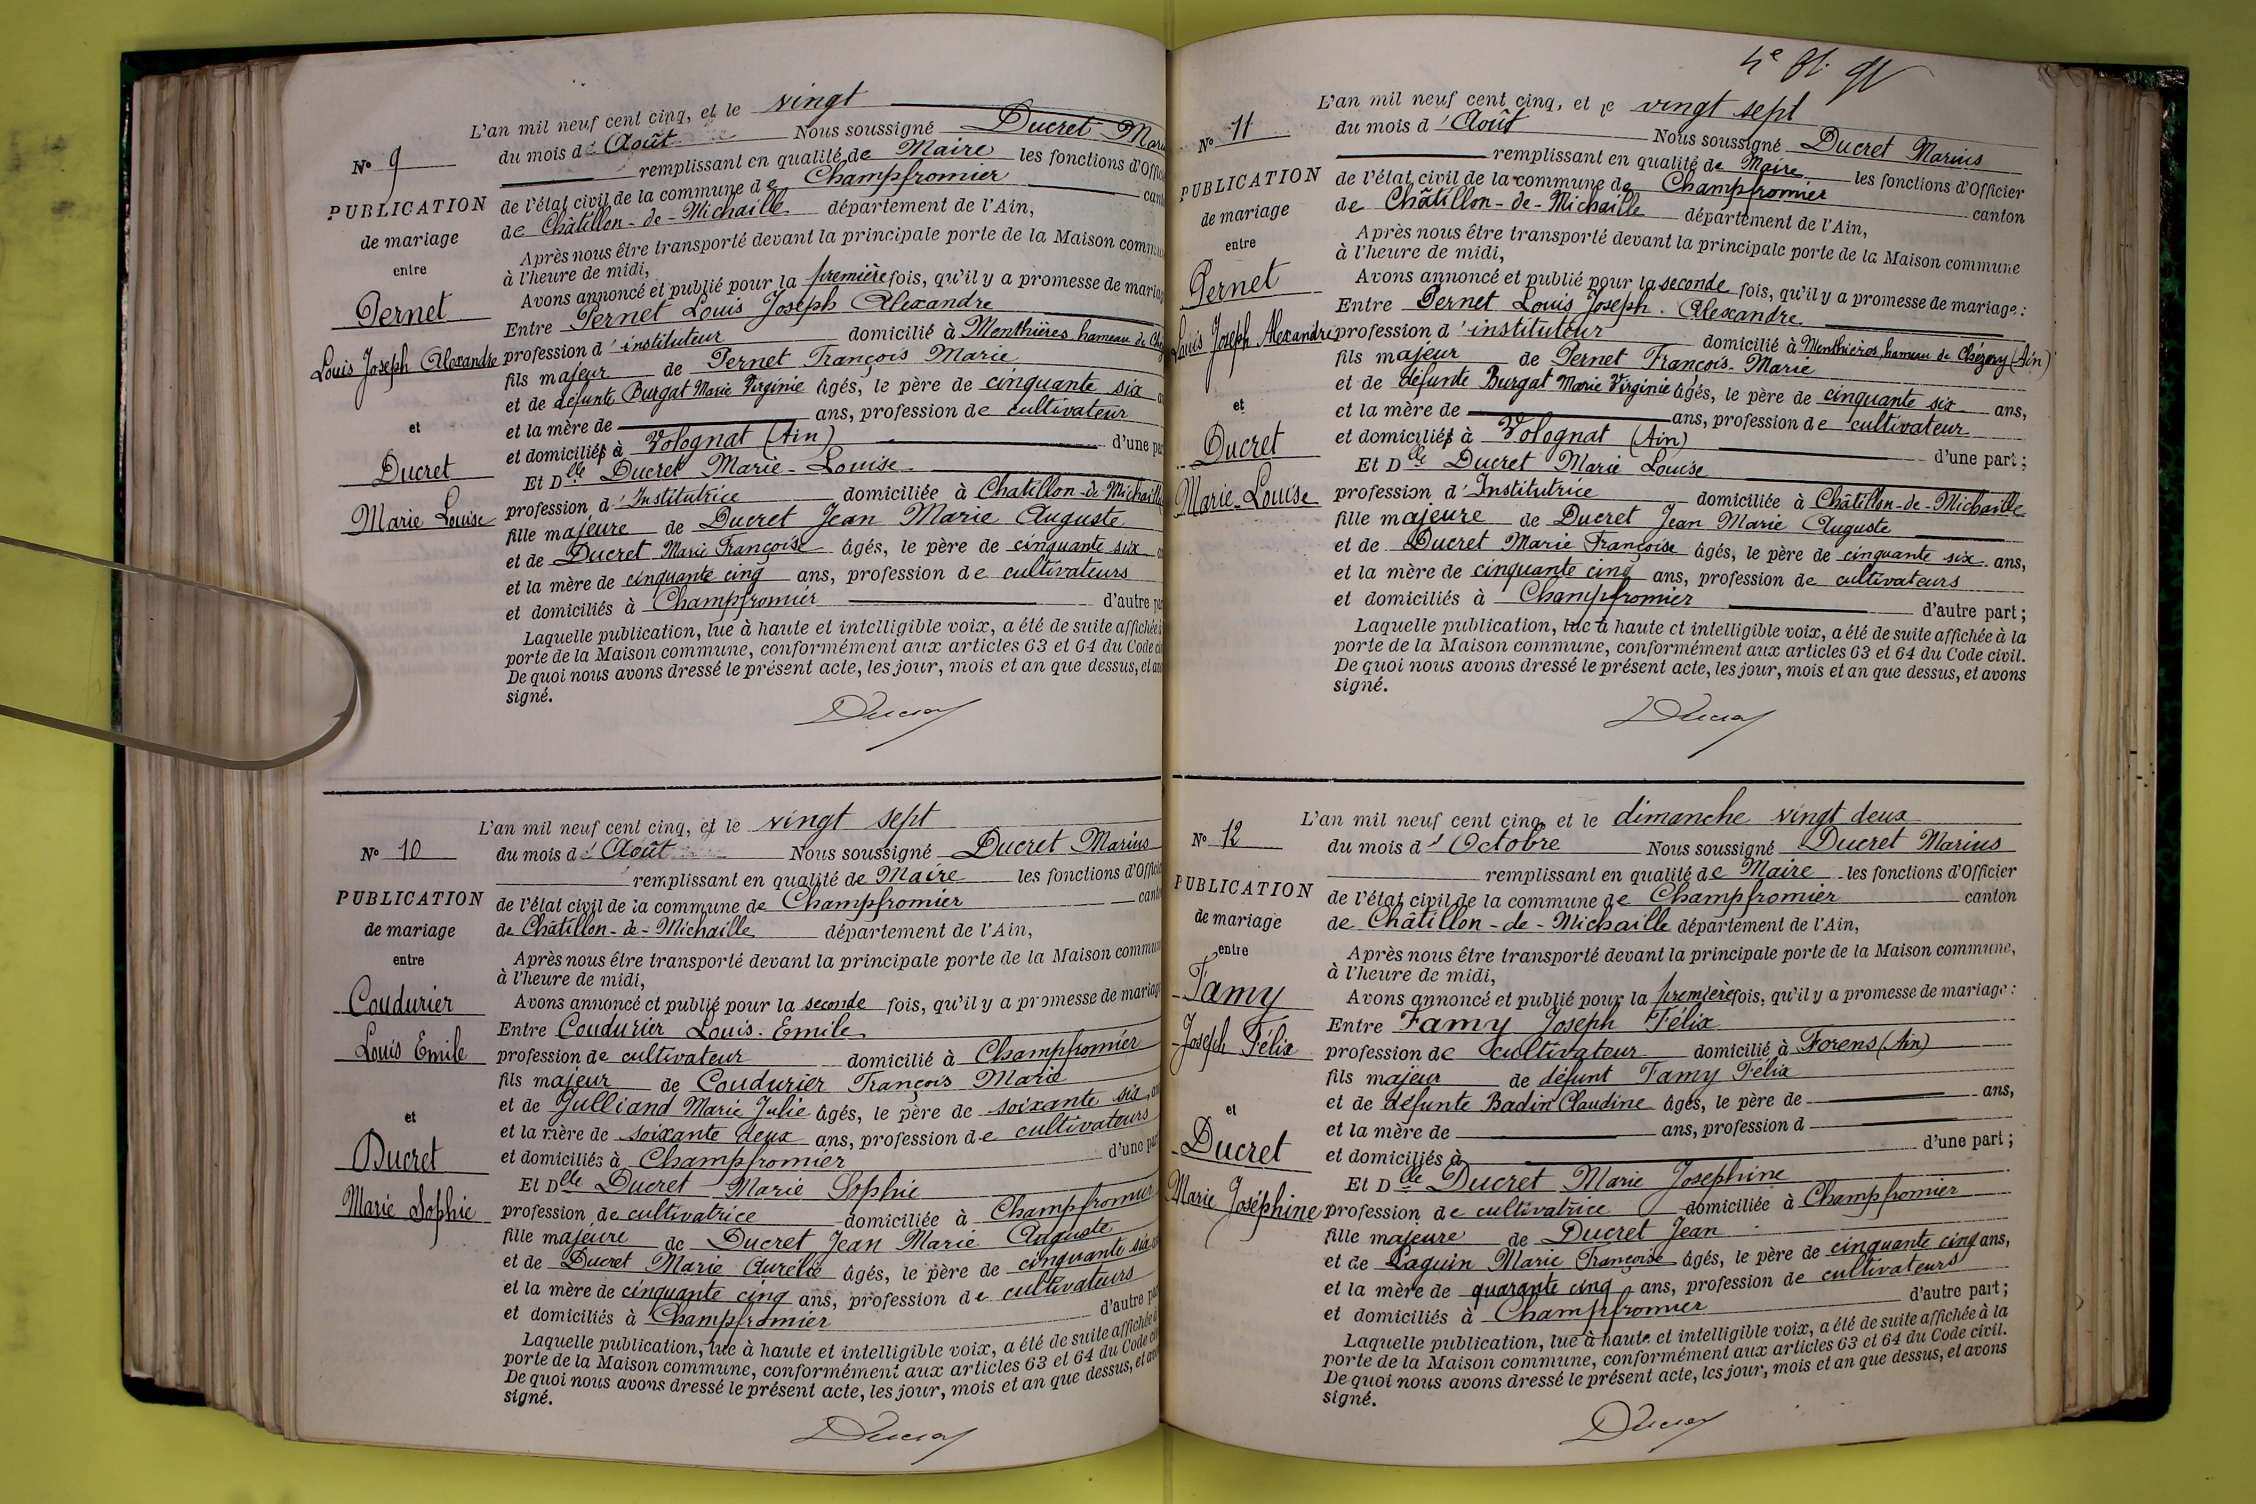 L'an mil neuf cent cinq, et le vingt
du mois d'Août Nous soussigné Ducret
remplissant en qualité de Maire les fonctions
N° 9
de l'état civil de la commune de Champfromier
PUBLICATION
de mariage
entre
Pernet
Louis Joseph Alexandre
et
Ducret
Marie Louise
de Châtillon-de-Michaille département de l'Ain,
Après nous être transporté devant la principale porte de la Maison
à l'heure de midi,
Avons annoncé et publié pour la première fois, qu'il y a promesse de
Entre Pernet Louis Joseph Alexandre
profession d'instituteur domicilié à Menthières hameau de
fils majeur de Pernet François Marie
et de défunte Burgat Marie Virginie âgés, le père de cinquante six
et la mère de ans, profession de cultivateur
et domiciliés à Volognat (Ain) d'une
Et Dlle Ducret Marie-Louise
profession d'Institutrice domiciliée à Chatillon-de-Michaille
fille majeure de Ducret Jean Marie Auguste
et de Ducret Marie Françoise âgés, le père de cinquante six
et la mère de cinquante cinq ans, profession de cultivateurs
et domiciliés à Champfromier d'autre
Laquelle publication, lue à haute et intelligible voix, a été de suite affichée à
porte de la Maison commune, conformément aux articles 63 et 64 du Code
De quoi nous avons dressé le présent acte, les jour, mois et an que dessus, et
signé.
Ducret
L'an mil neuf cent cinq, et le vingt sept
N° 10
du mois d'Août Nous soussigné Ducret Marius
remplissant en qualité de Maire les fonctions
PUBLICATION
de mariage
entre
Coudurier
Louis Emile
et
Ducret
Marie Sophie
de l'état civil de la commune de Champfromier
de Châtillon-de-Michaille département de l'Ain,
Après nous être transporté devant la principale porte de la Maison
à l'heure de midi,
Avons annoncé et publié pour la seconde fois, qu'il y a promesse de
Entre Coudurier Louis-Emile
profession de cultivateur domicilié à Champfromier
fils majeur de Coudurier François Marie
et de Julliand Marie Julie âgés, le père de soixante six
et la mère de soixante deux ans, profession de cultivateurs
et domiciliés à Champfromier d'une
Et Dlle Ducret Marie Sophie
profession de cultivatrice domiciliée à Champfromier
fille majeure de Ducret Jean Marie Auguste
et de Ducret Marie Aurélie âgés, le père de cinquante six
et la mère de cinquante cinq ans, profession de cultivateurs
et domiciliés à Champfromier d'autre
Laquelle publication, lue à haute et intelligible voix, a été de suite affichée à
porte de la Maison commune, conformément aux articles 63 et 64 du Code
De quoi nous avons dressé le présent acte, les jour, mois et an que dessus, et
signé.
Ducret
L'an mil neuf cent cinq, et le vingt sept
N° 11
du mois d'Août Nous soussigné Ducret Marius
remplissant en qualité de Maire les fonctions d'Officier
PUBLICATION
de mariage
entre
Pernet
Louis Joseph Alexandre
et
Ducret
Marie-Louise
de l'état civil de la commune de Champfromier canton
de Châtillon-de-Michaille département de l'Ain,
Après nous être transporté devant la principale porte de la Maison commune
à l'heure de midi,
Avons annoncé et publié pour la seconde fois, qu'il y a promesse de mariage:
Entre Pernet Louis Joseph Alexandre
profession d'instituteur domicilié à Menthières hameau de Chézery (Ain)
fils majeur de Pernet François-Marie
et de défunte Burgat Marie Virginie âgés, le père de cinquante six ans,
et la mère de ans, profession de cultivateur
et domiciliés à Volognat (Ain) d'une part;
Et Dlle Ducret Marie Louise
profession d'Institutrice domiciliée à Châtillon-de-Michaille
fille majeure de Ducret Jean Marie Auguste
et de Ducret Marie Françoise âgés, le père de cinquante six ans,
et la mère de cinquante cinq ans, profession de cultivateurs
et domiciliés à Champfromier d'autre part;
Laquelle publication, lue à haute et intelligible voix, a été de suite affichée à la
porte de la Maison commune, conformément aux articles 63 et 64 du Code civil.
De quoi nous avons dressé le présent acte, les jour, mois et an que dessus, et avons
signé.
Ducret
L'an mil neuf cent cinq, et le dimanche vingt deux
N° 12
du mois d'Octobre Nous soussigné Ducret Marius
remplissant en qualité de Maire les fonctions d'Officier
PUBLICATION
de mariage
entre
Famy
Joseph Félix
et
Ducret
Marie Joséphine
de l'état civil de la commune de Champfromier canton
de Châtillon-de-Michaille département de l'Ain,
Après nous être transporté devant la principale porte de la Maison commune,
à l'heure de midi,
Avons annoncé et publié pour la première fois, qu'il y a promesse de mariage:
Entre Famy Joseph Félix
profession de cultivateur domicilié à Forens (Ain)
fils majeur de défunt Famy Félix
et de défunte Badin Claudine âgés, le père de ans,
et la mère de ans, profession d
et domiciliés à d'une part;
Et Dlle Ducret Marie Josephine
profession de cultivatrice domiciliée à Champfromier
fille majeure de Ducret Jean
et de Laguin Marie Françoise âgés, le père de cinquante cinq ans,
et la mère de quarante cinq ans, profession de cultivateurs
et domiciliés à Champfromier d'autre part;
Laquelle publication, lue à haute et intelligible voix, a été de suite affichée à la
porte de la Maison commune, conformément aux articles 63 et 64 du Code civil.
De quoi nous avons dressé le présent acte, les jour, mois et an que dessus, et avons
signé.
Ducret